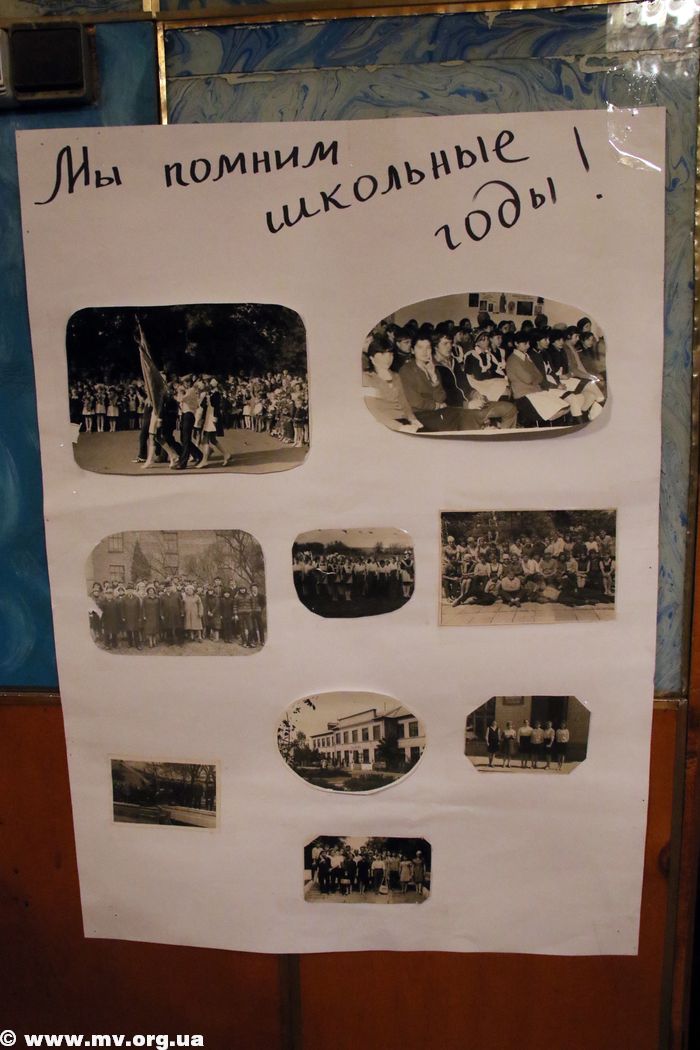 Мы помним
школьные
годы!
© www.mv.org.ua